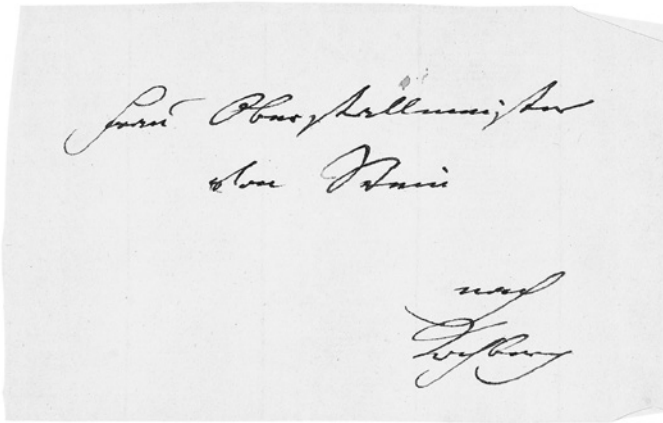 Frau Oberstallmeister
von Stein
nach
Kochberg